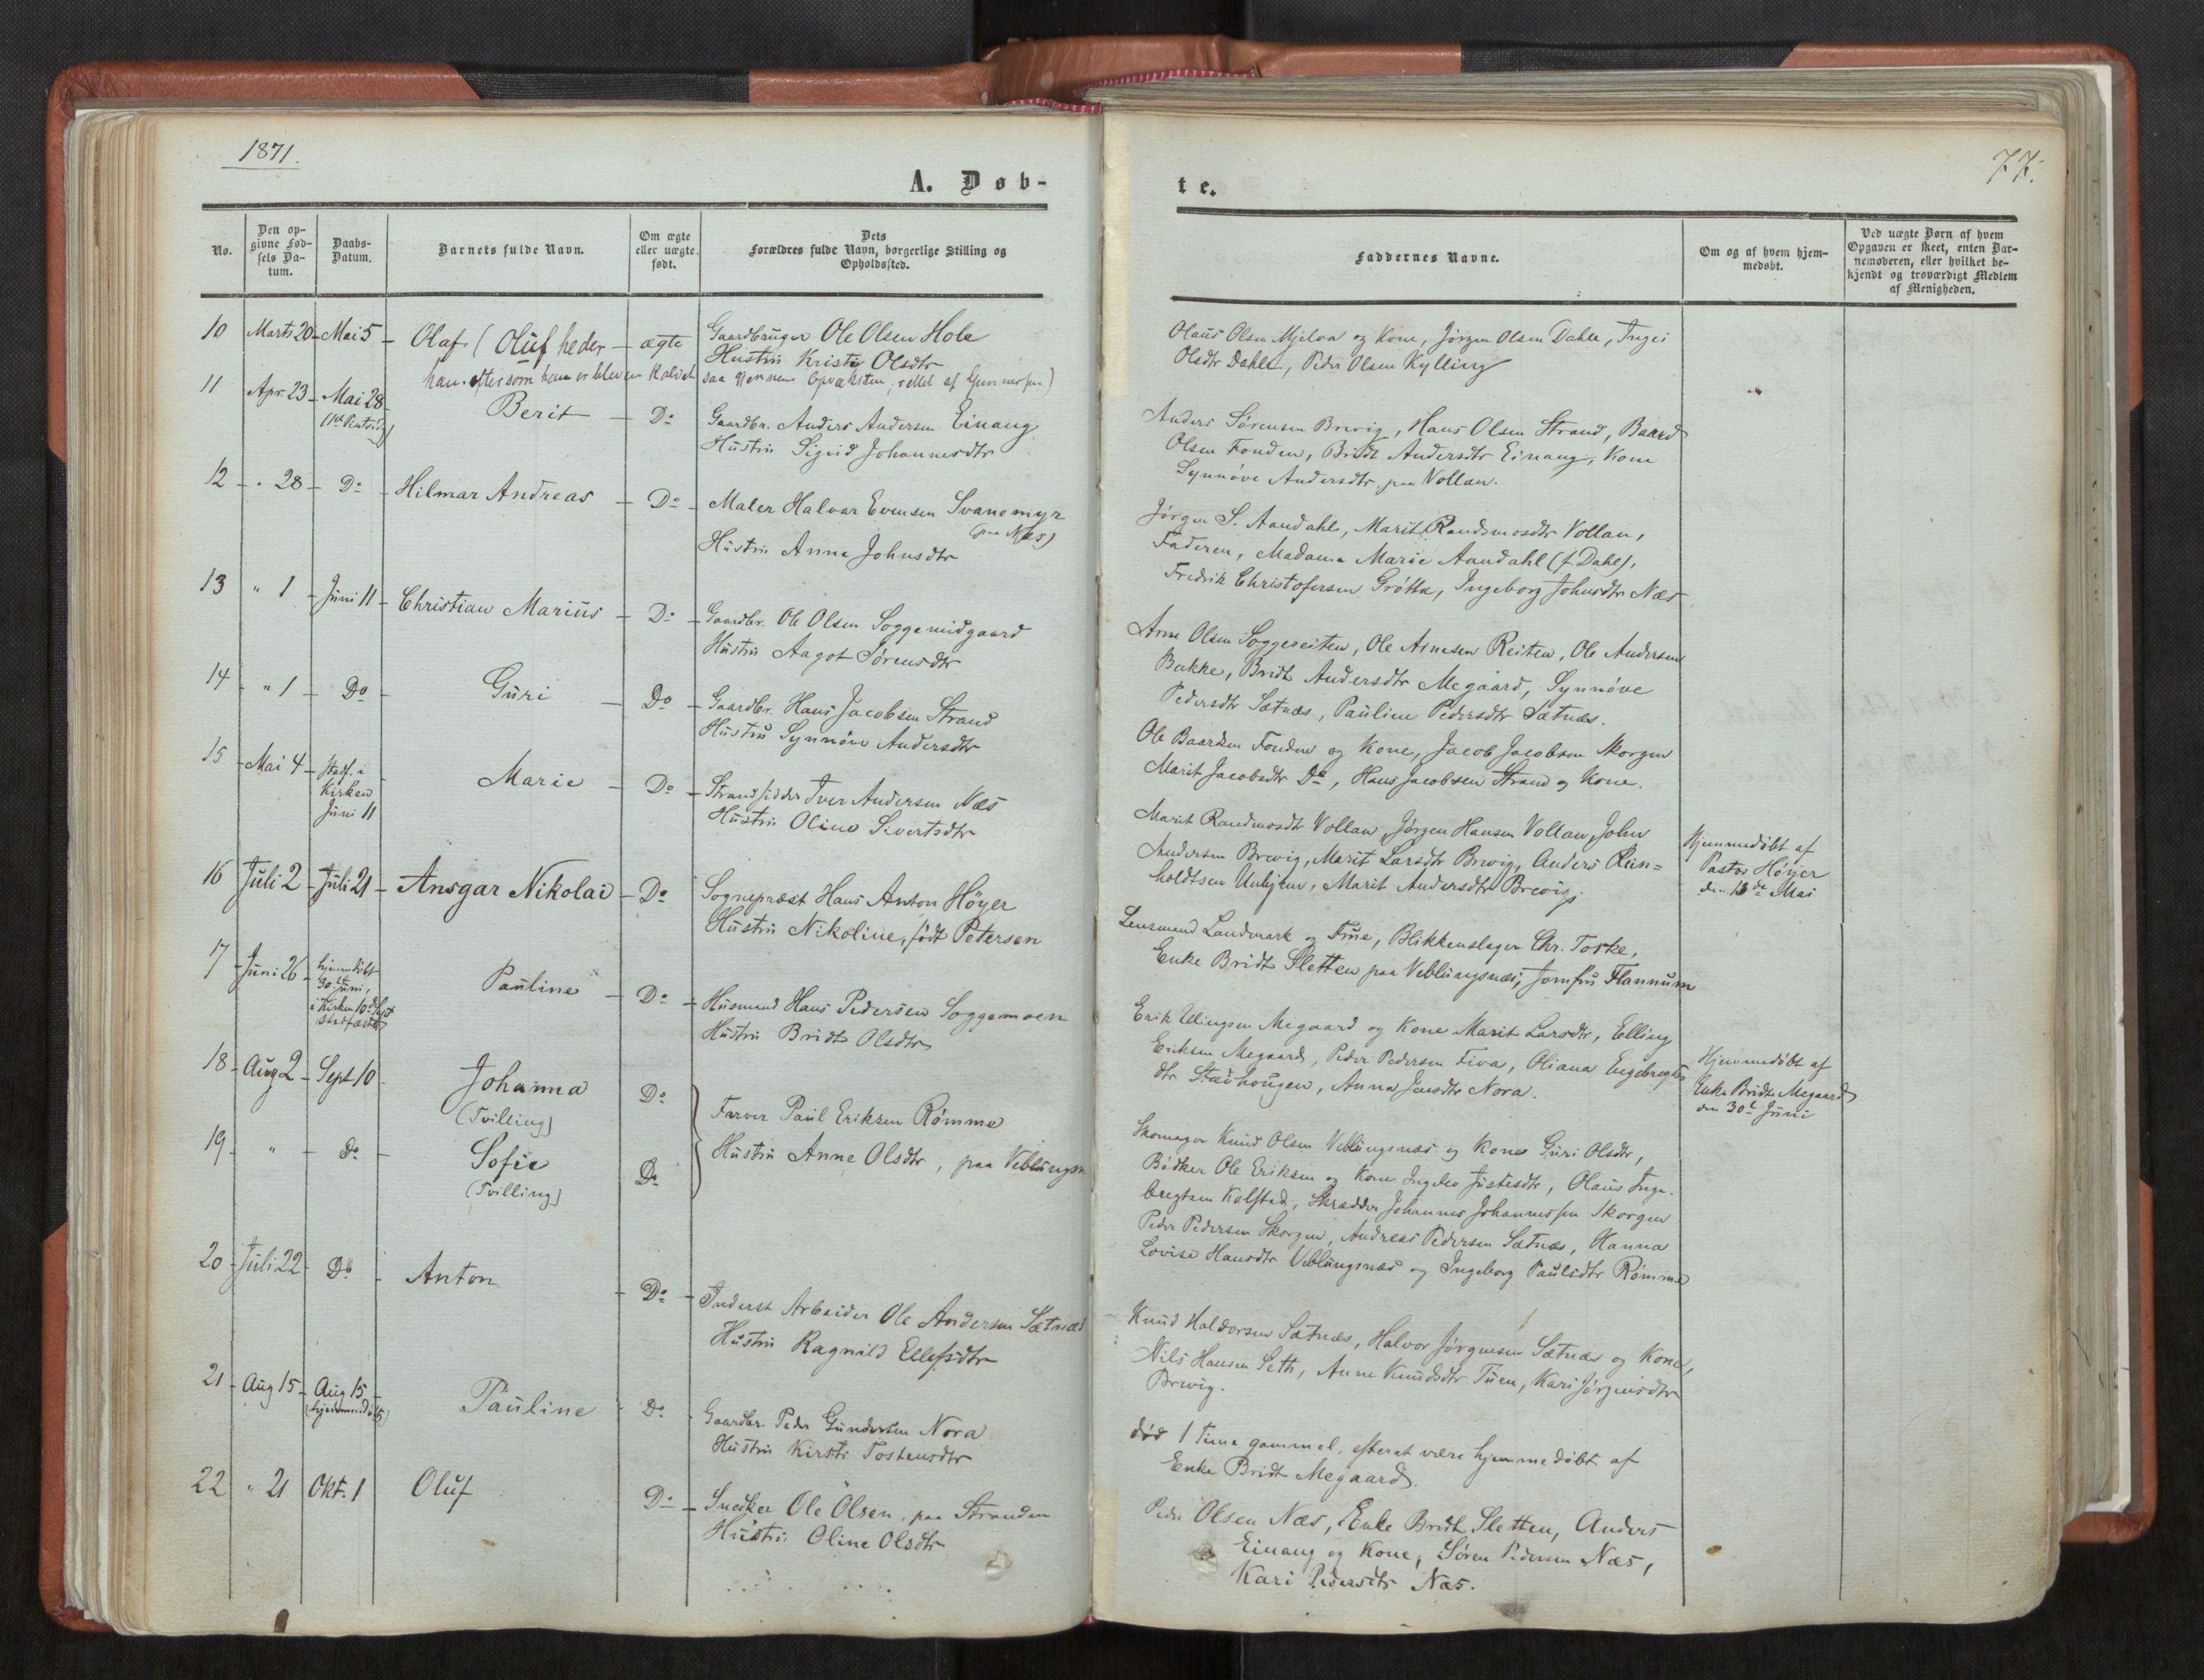 1871.
77.
A. Døb-
te.
No.
Den op-
givne Fød-
sels Da-
tum.
Daabs-
Datum.
Barnets fulde Navn.
Om ægte
eller uægte
født.
Dets
Forældres fulde Navn, borgerlige Stilling og
Opholdssted.
Faddernes Navne.
Om og af hvem hjem-
medøbt.
Ved uægte Børn af hvem
Opgaven er skeet, enten Bar-
nemoderen, eller hvilket be-
kjendt og troværdigt Medlem
af Menigheden.
10 Marts 20 Mai 5 Olaf (Oluf heder ægte Gaardbruger Ole Olsen Hole
Hustru Kristi Olsdtr
han, eftersom han er bleven kaldet saa gjennem Opvæksten, rettet af Gunnersen)
Olaus Olsen Mjelva og Kone, Jørgen Olsen Dahle, Inger
Olsdtr Dahle, Peder Olsen Kylling
11 Apr. 23 Mai 28 Berit Do Gaardbr. Anders Andersen Einang
Hustru Sigrid Johannesdtr
Anders Sørensen Brevig, Hans Olsen Strand, Baard
Olsen Fonden, Bridt Andersdtr Einang, Kone
Synnøve Andersdtr paa Vollan.
12 " 28 Do Hilmar Andreas Do Maler Halvar Evensen Svanemyr
(paa Næs)
Hustru Anne Johnsdtr
Jørgen S. Aandahl, Marit Randmosdtr Vollan,
Faderen, Madame Marie Aandahl (f. Dahl),
Fredrik Christofersen Grøtta, Ingeborg Johnsdtr Næs
13 " 1 Juni 11 Christian Marius Do Gaardbr. Ole Olsen Soggemidgaard
Hustru Aagot Sørensdtr
Arne Olsen Soggereiten, Ole Arnesen Reiten, Ole Andersen
Bakke, Bridt Andersdtr Megaard, Synnøve
Pedersdtr Sætnæs, Pauline Pedersdtr Sætnæs.
14 " 1 Do Guri Do Gaardbr. Hans Jacobsen Strand
Hustru Synnøve Andersdtr
Ole Baardsen Fonden og Kone, Jacob Jacobsen Skorgen
Marit Jacobsdtr Do, Hans Jacobsen Strand og Kone.
15 Mai 4 Stadf. i
Kirken
Juni 11
Marie Do Strandsidder Iver Andersen Næs
Hustru Oline Sivertsdtr
Marit Randmosdtr Vollan, Jørgen Hansen Vollan, John
Andersen Brevig, Marit Larsdtr Brevig, Anders Rein-
holdtsen Unhjem, Marit Andersdtr Brevig.
Hjemmedøbt af
Pastor Höyer
den 13de Mai
16 Juli 2 Juli 21 Ansgar Nikolai Do Sognepræst Hans Anton Höyer
Hustru Nikoline, født Petersen
Lensmand Landmark og Frue, Blikkenslager Chr. Torke,
Enke Bridt Sletten paa Veblungsnæs, Jomfru Flannum
17 Juni 26 hjemmedøbt
30te Juni,
i Kirken 10de Sept
stadfæstet
Pauline Do Husmand Hans Pedersen Soggemoen
Hustru Bridt Olsdtr
Erik Ellingsen Megaard og Kone Marit Larsdtr, Elling
Eriksen Megaard, Peder Pedersen Fiva, Oliana Engebregts-
dtr Stavhougen, Anna Jensdtr Nora.
Hjemmedøbt af
Enke Bridt Megaard
den 30te Juni
18 Aug 2 Sept 10 Johanna
(Tvilling)
Do
Farver Paul Eriksen Rømme
19 " Do Sofie
(Tvilling)
Do
Hustru Anne Olsdtr, paa Veblungsn
Skomager Knud Olsen Veblungsnæs og Kone Guri Olsdtr,
Bødker Ole Eriksen og Kone Justesdtr, Olaus Inge-
bregtsen Kolstad, Skrædder Johannes Johannessen Skorgen
Peder Pedersen Skorgen, Andreas Pedersen Sætnæs, Hanna
Lovise Hansdtr Veblungsnæs og Ingeborg Paulsdtr Rømme
20 Juli 22 Do Anton Do Inderst Arbeider Ole Andersen Sætnæs
Hustru Ragnild Ellefsdtr
Knud Haldorsen Sætnæs, Halvor Jørgensen Sætnæs og Kone,
Nils Hansen Seth, Anne Knudsdtr Tuen, Kari Jørgensdtr
Brevig.
21 Aug 15 Aug 15
(hjemmedøbt)
Pauline Do Gaardbr. Peder Gundersen Nora
Hustru Kirsti Tostensdtr
død 1 Time gammel, efterat være hjemmedøbt af
Enke Bridt Megaard.
22 " 21 Okt. 1 Oluf Do Snedker Ole Olsen, paa Stranden
Hustru Oline Olsdtr
Peder Olsen Næs, Enke Bridt Sletten, Anders
Einang og Kone, Søren Pedersen Næs,
Kari Pedersdtr Næs.